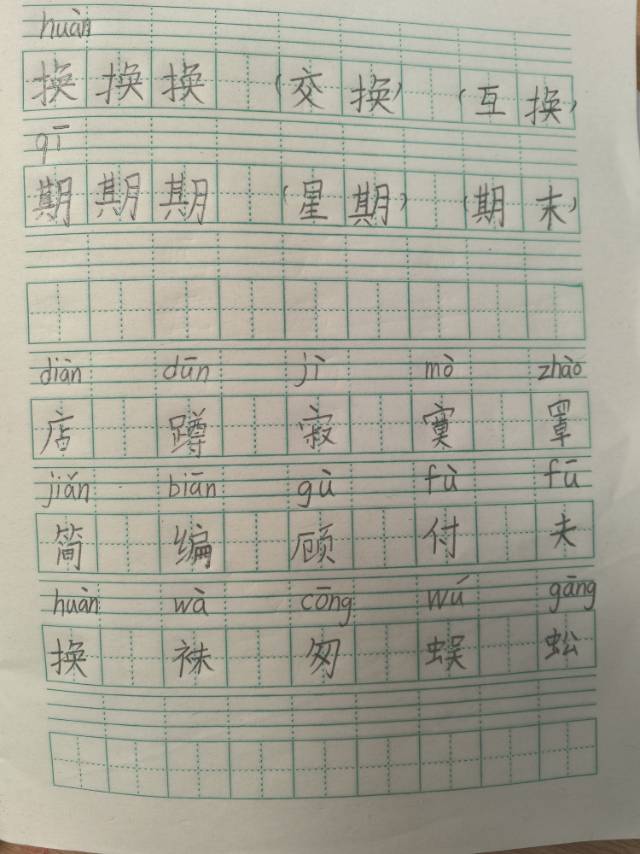 huàn
换 换 换 (交 换) (互 换)
qī
期 期 期 (星 期) (期 末)
diàn dūn jì mò zhào
店 蹲 寂 寞 罩
jiǎn biān gù fù fū
简 编 顾 付 夫
huàn wà cōng wú gāng
换 袜 匆 蜈 蚣